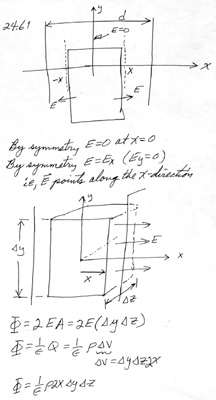 24.61
y
d
E=0
-x
x
x
E
E
By symmetry E=0 at x=0
By symmetry E=Ex (Ey=0)
ie, E⃗ points along the x-direction
y
Δy
E
x
x
Δz
Φ = 2EA = 2E(ΔyΔz)
Φ = 1/ε Q = 1/ε ρΔV
ΔV = ΔyΔz2x
Φ = 1/ε ρ2xΔyΔz